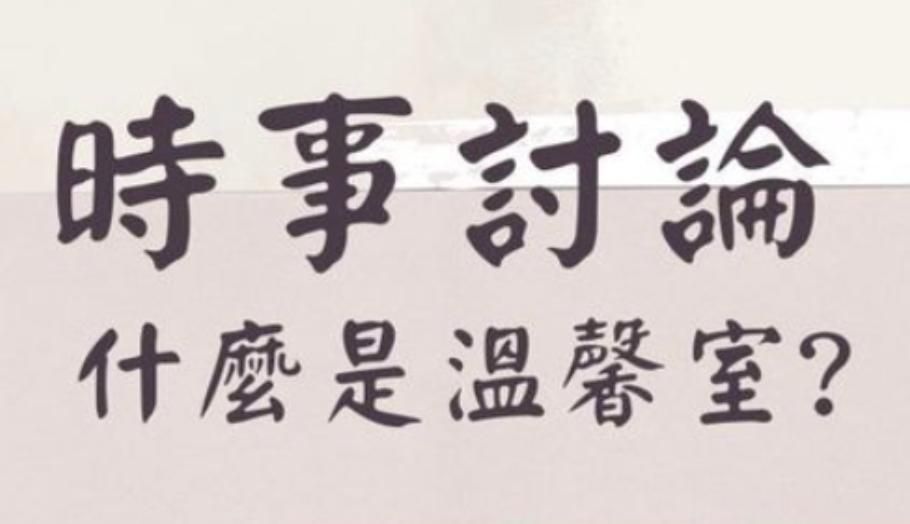 時事討論
什麼是溫馨室?